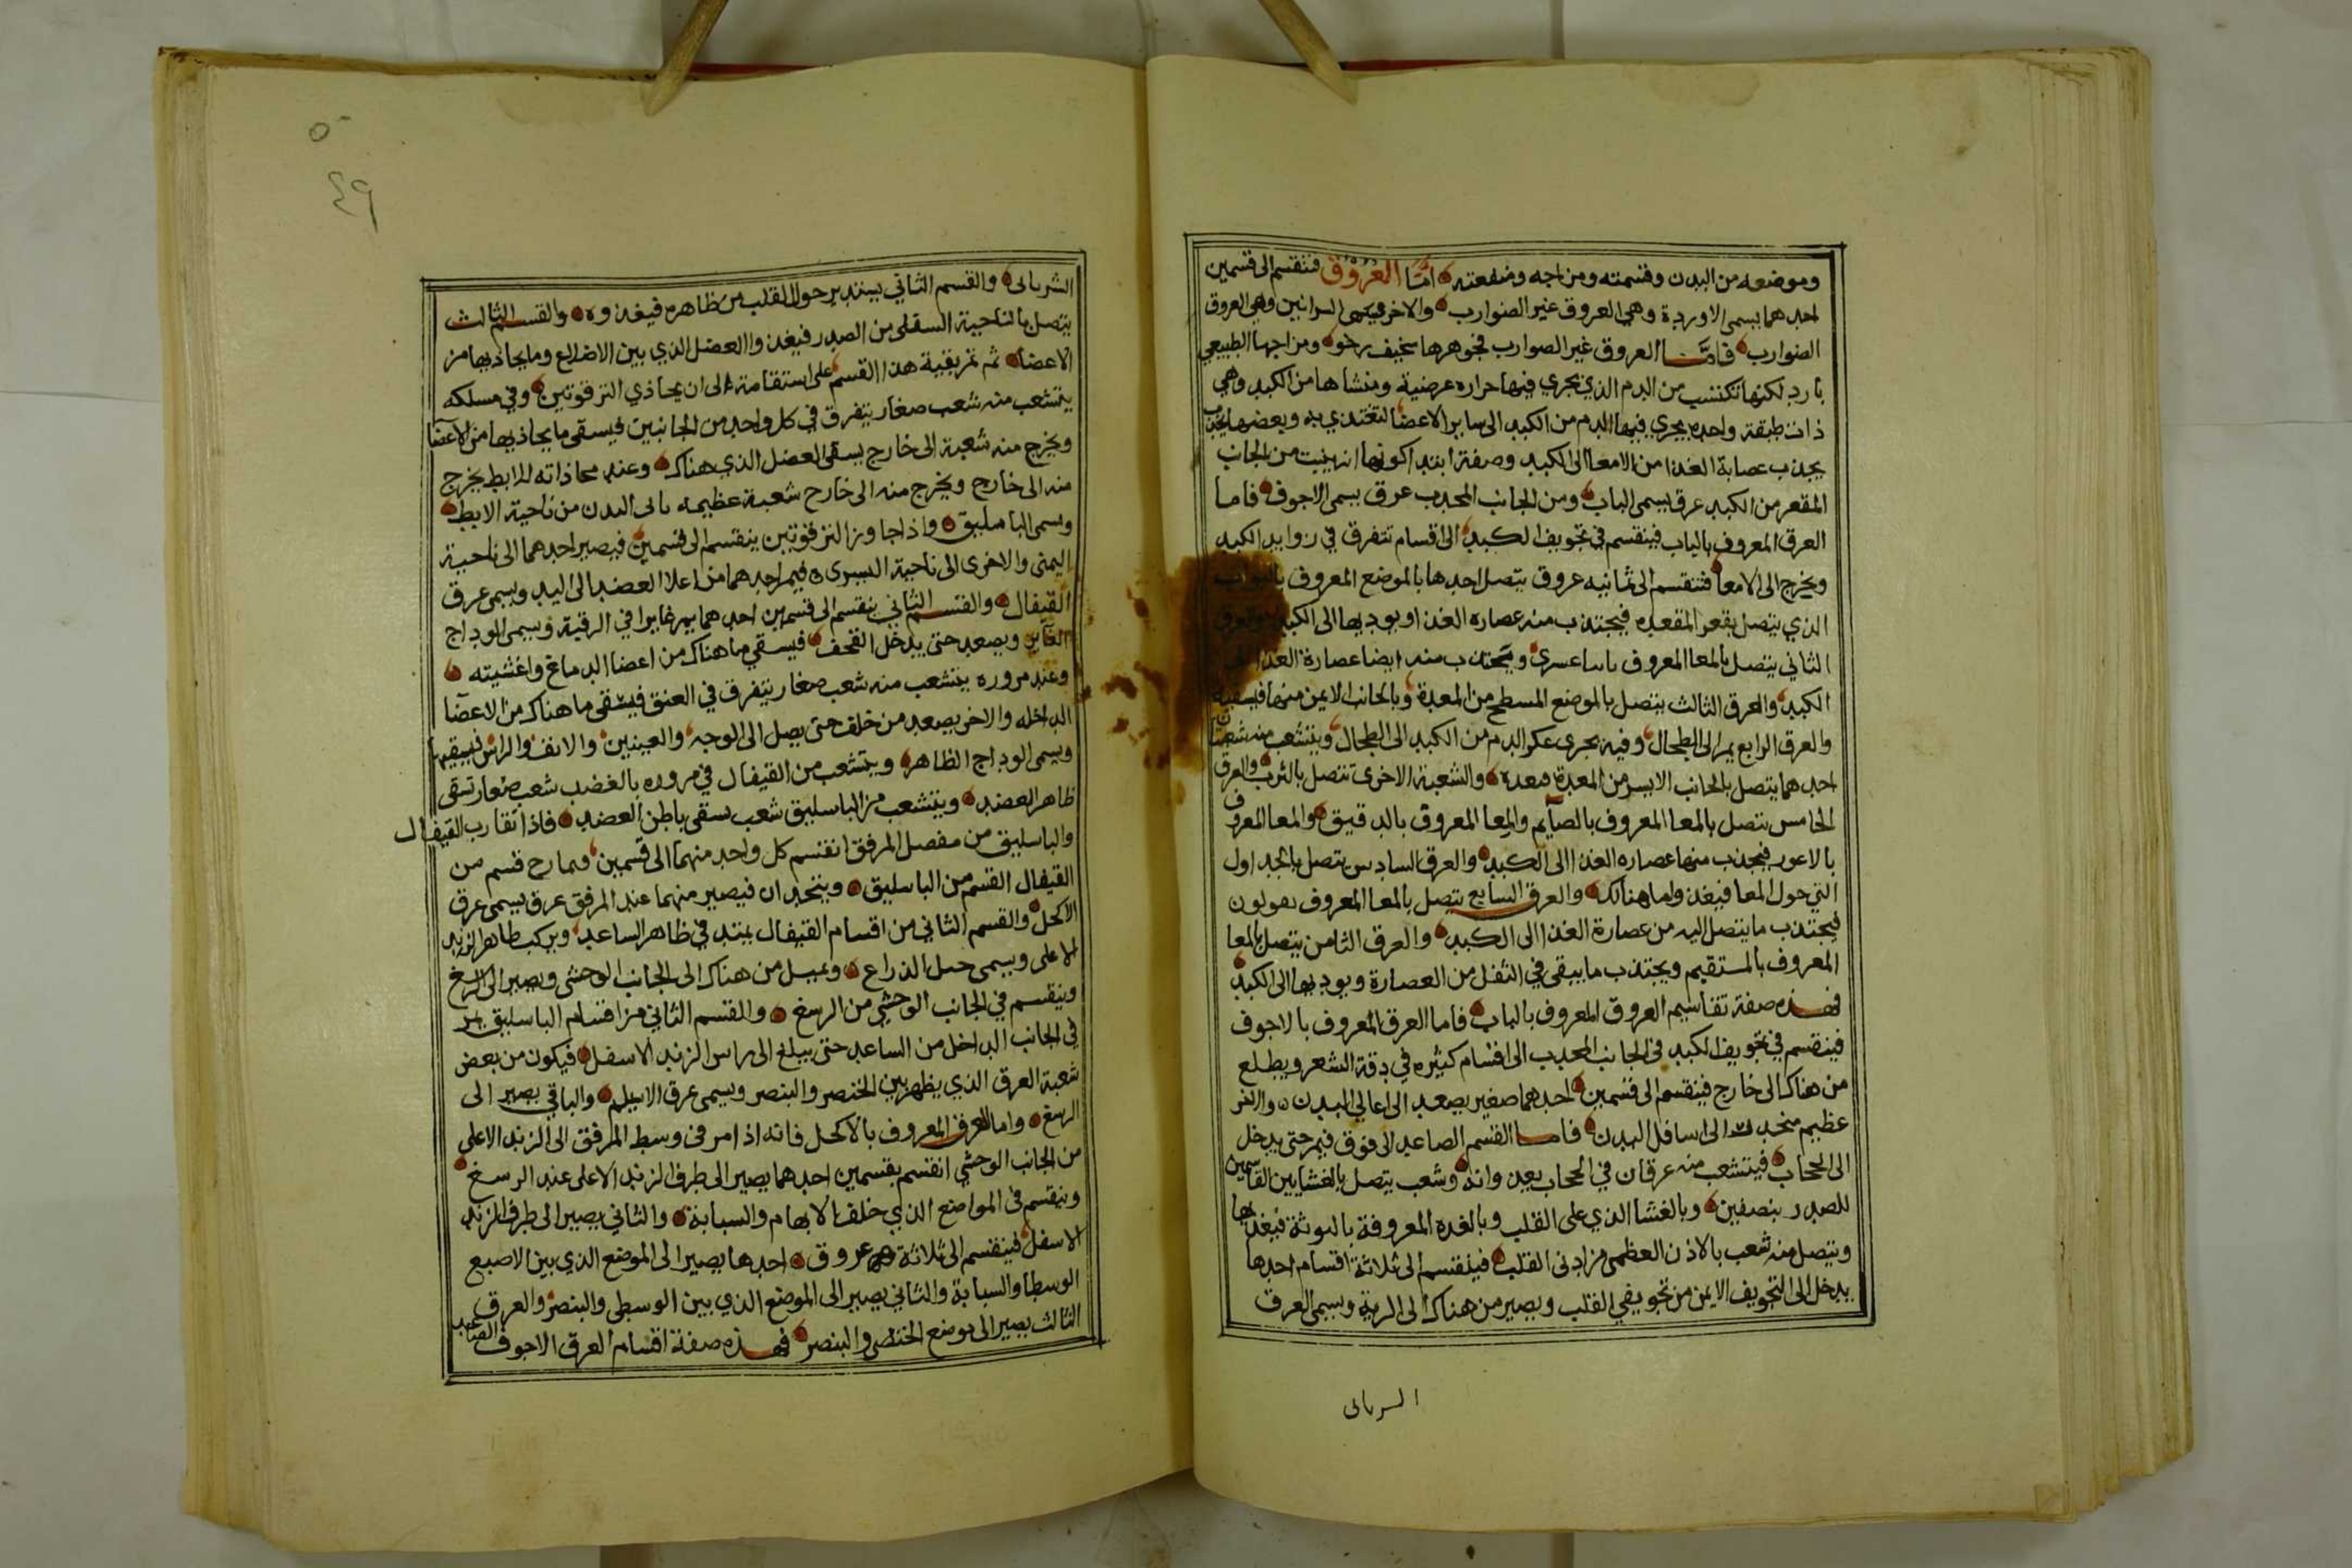 وموضعه من البدن وقسمته ومزاجه ومنفعته امّا العُرُوْق فتنقسم الى قسمين
احدهما يسمى الاوردة وهي العروق غير الضوارب والاخر يسمى السرانين وهي العروق
الضوارب فامّا العروق غير الصوارب فجوهرها سخيف رخو ومزاجها الطبيعي
بارد لكنها تكتسب من الدم الذي يجري فيها حراره عرضية ومنشاها من الكبد وهي
ذات طبقة واحده يجري فيها الدم من الكبد الى ساير الاعضا لتغتذي به وبعضها
يجذب عصابة الغذا من الامعا الى الكبد وصفة ابتدا كونها انه ينبت من الجانب
المقعر من الكبد عرق يسمى الباب ومن الجانب المحدب عرق يسمى الاجوف فاما
العرق المعروف بالباب فينقسم في تجويف الكبد الى اقسام تتفرق في زوايد الكبد
ويخرج الى الامعا فتنقسم الى ثمانيه عروق يتصل احدها بالموضع المعروف بالبواب
الذي يتصل بقعر المقعده فيجتذب منه عصاره الغذا ويوديها الى الكبد
الثاني يتصل بالمعا المعروف باساعسرى ويجتذب منه ايضا عصارة الغذا
الكبد والعرق الثالث يتصل بالموضع المسطح من المعدة وبالجانب الايمن منها فيسقيه
والعرق الرابع يمر الى الطحال وفيه يجرى عكر الدم من الكبد الى الطحال ويتشعب منه شعبتان
احدهما يتصل بالجانب الايسر من المعدة فيغده والشعبة الاخرى تتصل بالثرب والعرق
الخامس يتصل بالمعا المعروف بالصآيم والمعا المعروف بالدقيق والمعا المعروف
بالاعور فيجذب منها عصاره الغذا الى الكبد والعرق السادس يتصل بالجداول
التي حول المعا فيغذوا ما هنالك والعرق السابع يتصل بالمعا المعروف بقولون
فيجتذب ما يتصل اليه من عصارة الغذا الى الكبد والعرق الثامن يتصل بالمعا
المعروف بالمستقيم ويجتذب ما يبقى في الثفل من العصارة ويوديها الى الكبد
فهذه صفة تقاسيم العروق المعروف بالباب فاما العرق المعروف بالاجوف
فينقسم في تجويف الكبد في الجانب المحدب الى اقسام كثيره في دقة الشعر ويطلع
من هناك الى خارج فينقسم الى قسمين احدهما صغير يصعد الى اعالي البدن والاخر
عظيم منحدر الى اسافل البدن فاما القسم الصاعد الى فوق فيمر حتى يدخل
الى الحجاب فيتشعب منه عرقان في الحجاب يغدوانه وشعب يتصل بالغشايين القاسمين
للصدر بنصفين وبالغشا الذي على القلب وبالغده المعروفة بالتوثة فيغذيها
ويتصل منه شعب بالاذن العظمى من اذني القلب فينقسم الى ثلاثة اقسام احدها
يدخل الى التجويف الايمن من تجويفي القلب ويصير من هناك الى الرية ويسمى العرق
السربانى
٥٠
٤٩
الشربانى والقسم الثاني يستدير حول القلب من ظاهره فيغذوه والقسم الثالث
يتصل بالناحية السفلى من الصدر فيغذوا العضل الذي بين الاضلاع وما يحاذيها من
الاعضا ثم تمر بقية هذا القسم على استقامة الى ان يحاذي الترقوتين وفي مسلكه
يتشعب منه شعب صغار يتفرق في كل واحد من الجانبين فيسقى ما يحاذيها من الاعضآ
ويخرج منه شعبة الى خارج يسقى العضل الذي هناك وعند محاذاته للابط يخرج
منه الى خارج ويخرج منه الى خارج شعبة عظيمه ياتى اليدن من ناحية الابط
ويسمى الباسليق واذا جاوز الترقوتين ينقسم الى قسمين فيصير احدهما الى ناحية
اليمنى والاخرى الى ناحية اليسرى فيمر احدهما من اعلا العضد الى اليد ويسمى عرق
القيفال والقسم الثاني ينقسم الى قسمين احدهما يمر غايرا في الرقبة ويسمى الوداج
الغآير ويصعد حتى يدخل القحف فيسقي ما هناك من اعضا الدماغ واغشيته
وعند مروره يتشعب منه شعب صغار يتفرق في العنق فيسقى ما هناك من الاعضآ
الداخله والاخر يصعد من خلف حتى يصل الى الوجه والعينين والانف والراس فيسقيها
ويسمى الوداج الظاهر ويتشعب من القيفال في مروره بالغضد شعب صغار تسقى
ظاهر العضد ويتشعب من الباسليق شعب تسقى باطن العضد فاذا تقارب القيفال
والباسليق من مفصل المرفق انقسم كل واحد منهما الى قسمين فيمازج قسم من
القيفال القسم من الباسليق ويتحدان فيصير منهما عند المرفق عرق يسمى عرق
الاكحل والقسم الثاني من اقسام القيفال يمتد في ظاهر الساعد ويركب ظاهر الزند
الاعلى ويسمى حبل الذراع ويميل من هناك الى الجانب الوحشى ويصير الى الرسغ
وينقسم في الجانب الوحشي من الرسغ والقسم الثاني من اقسام الباسليق يمر
في الجانب الداخل من الساعد حتى يبلغ الى راس الزند الاسفل فيكون من بعض
شعبة العرق الذي يظهر بين الخنصر والبنصر ويسمى عرق الاسيلم والباقي يصير الى
الرسغ واما العرق المعروف بالاكحل فانه اذا مر في وسط المرفق الى الزند الاعلى
من الجانب الوحشي انقسم بقسمين احدهما يصير الى طرف الزند الاعلى عند الرسغ
وينقسم في المواضع الذي خلف الابهام والسبابة والثاني يصير الى طرف الزند
الاسفل فينقسم الى ثلاثة عروق احدها يصير الى الموضع الذي بين الاصبع
الوسطا والسبابة والثاني يصير الى الموضع الذي بين الوسطى والبنصر والعرق
الثالث يصير الى موضع الخنصر والبنصر فهذه صفة اقسام العرق الاجوف الصاعد